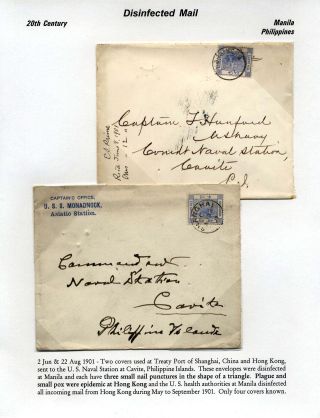 Disinfected Mail
20th Century
Manila
Philippines
Captain F Hanford
U S Navy
Comdt Naval Station,
Cavite
P.I.
CAPTAIN'S OFFICE,
U. S. S. MONADNOCK,
Asiatic Station.
Commandant
Naval Station
Cavite
Philippine Islands
2 Jun & 22 Aug 1901 - Two covers used at Treaty Port of Shanghai, China and Hong Kong,
sent to the U. S. Naval Station at Cavite, Philippine Islands. These envelopes were disinfected
at Manila and each have three small nail punctures in the shape of a triangle. Plague and
small pox were epidemic at Hong Kong and the U. S. health authorities at Manila disinfected
all incoming mail from Hong Kong during May to September 1901. Only four covers known.